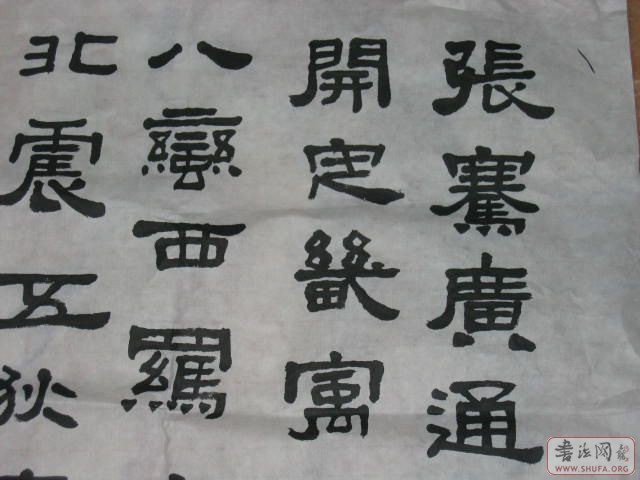 張騫廣通
開定畿寓
八蠻西羈
北震五狄
WWW.SHUFA.ORG